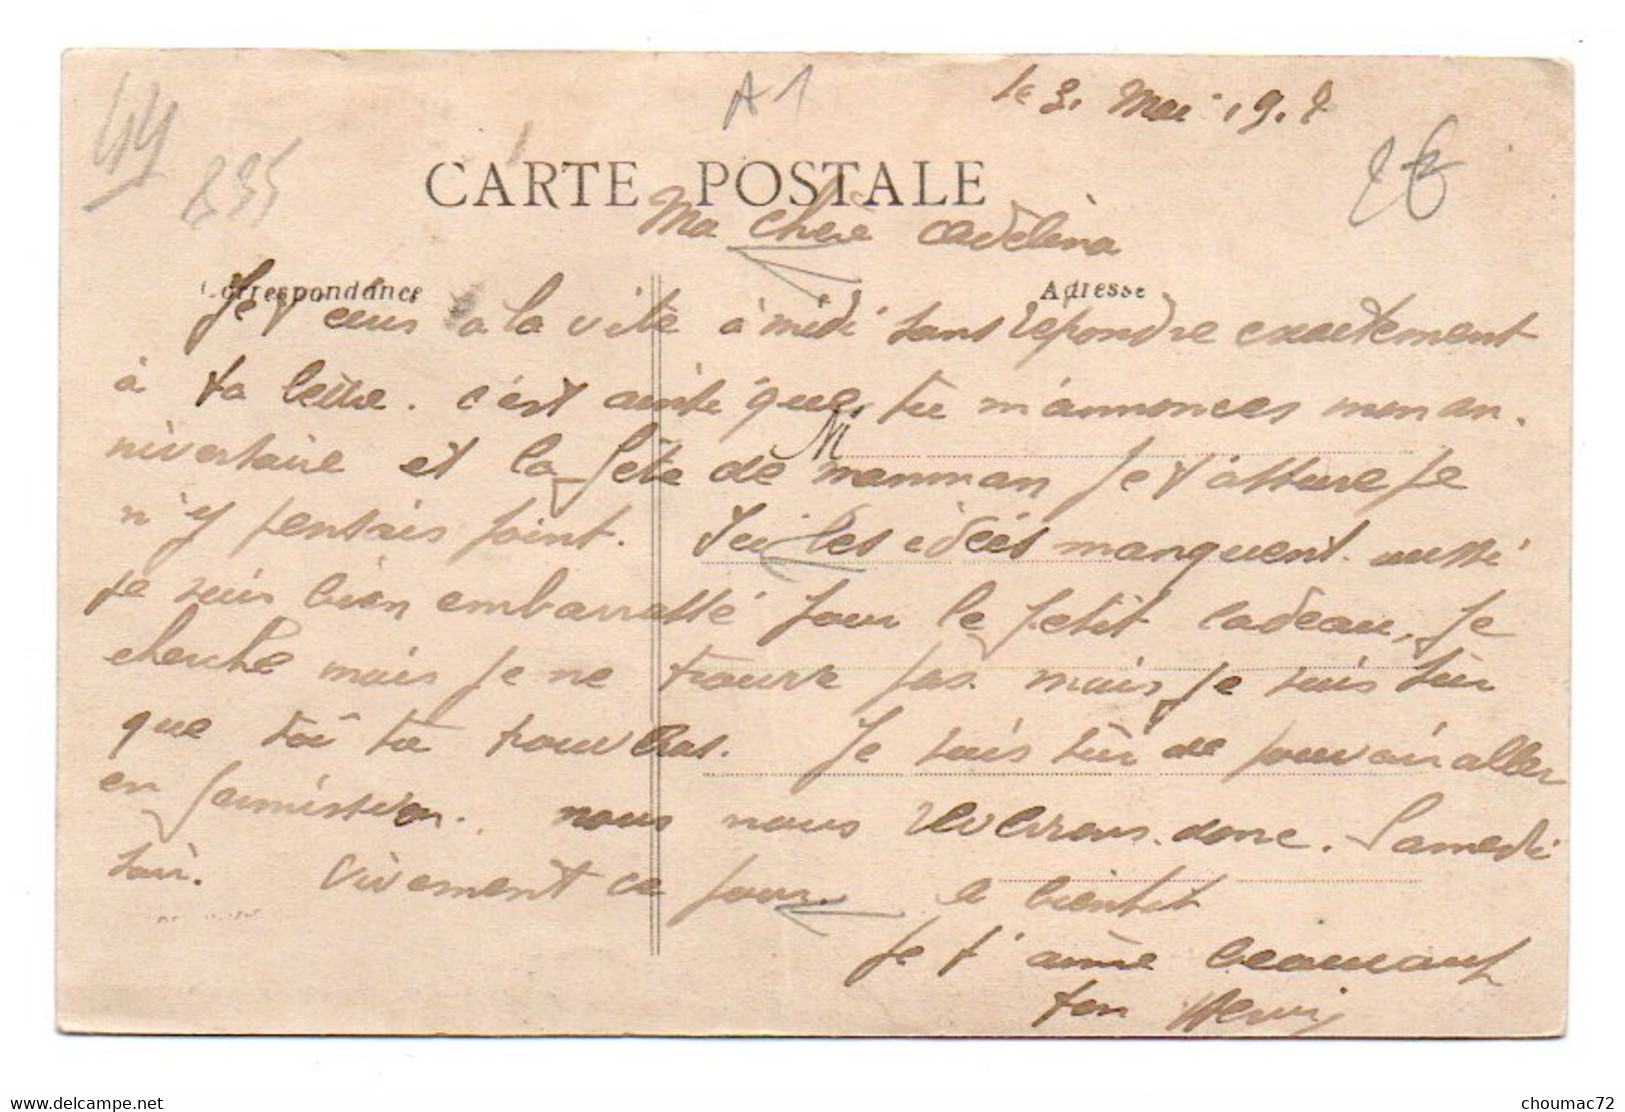 44
835
A1
le 3. Mai 19.7
2€
CARTE POSTALE
Ma chère Adelina
Correspondance
Adresse
Je t'ecris a la vite à midi sans repondre exactement
à ta lettre. c'est ainsi que tu m'annonces mon an.
M
niversaire et la fête de manman je t'assure je
n'y pensais point. Ici les idées manquent aussi
je suis bien embarrassé pour le petit cadeau, je
cherche mais je ne trouve pas. mais je suis sûr
que toi tu trouveras. Je suis sûr de pouvoir aller
en permission. nous nous reverrons donc. Samedi
soir. vivement ce jour. a bientôt
je t'aime beaucoup
ton Henri
www.delcampe.net
choumac72